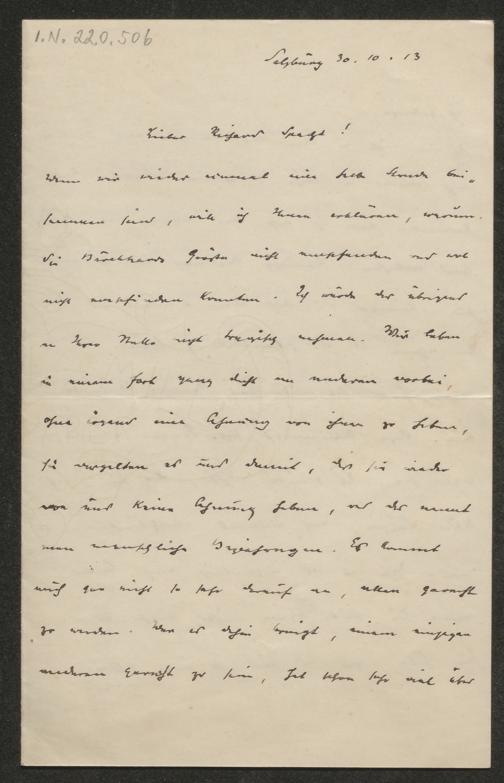 I.N. 220.506
Salzburg 30. 10. 13
Lieber Richard Specht!
Wenn wir wieder einmal eine halbe Stunde bei-
sammen sind, will ich Ihnen erklären, warum
Sie Burckhards Größe nicht empfunden und
nicht empfinden konnten. Ich würde das übrigens
an Ihrer Stelle nicht tragisch nehmen. Wir leben
in einem fort ganz dicht an anderen vorbei,
ohne irgend eine Ahnung von ihnen zu haben,
sie vergelten es uns damit, daß sie wieder
von uns keine Ahnung haben, und das nennt
man menschliche Beziehungen. Es kommt
auch gar nicht so sehr darauf an, allen gerecht
zu werden. Wer es dahin bringt, einem einzigen
anderen gerecht zu sein, hat schon sehr viel über